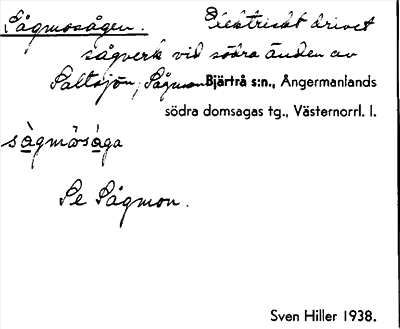 Sågmosågen. Elektriskt drivet
sågverk vid södra änden av
Saltsjön, Sågmon Bjärtrå s:n., Ångermanlands
södra domsagas tg., Västernorrl. l.
sågmosåga
Se Sågmon.
Sven Hiller 1938.